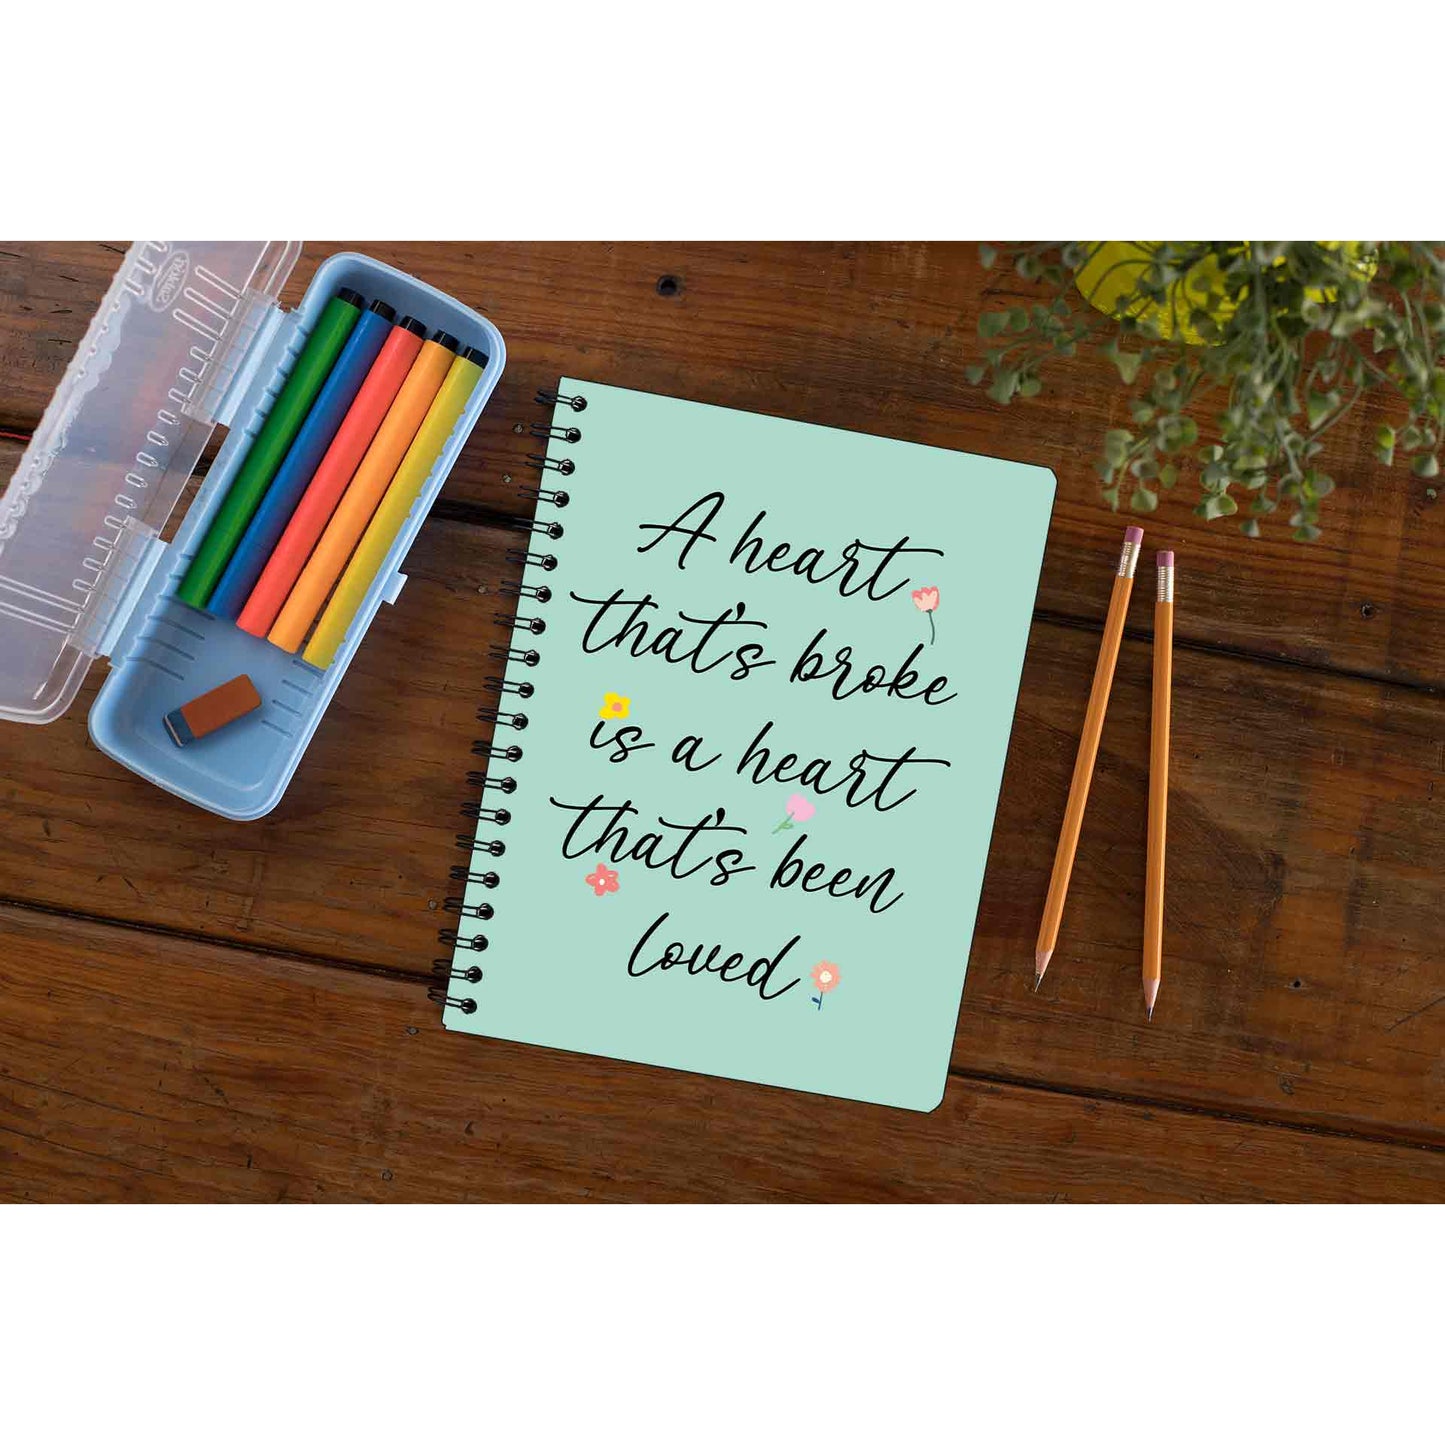 A heart
that's broke
is a heart
that's been
loved